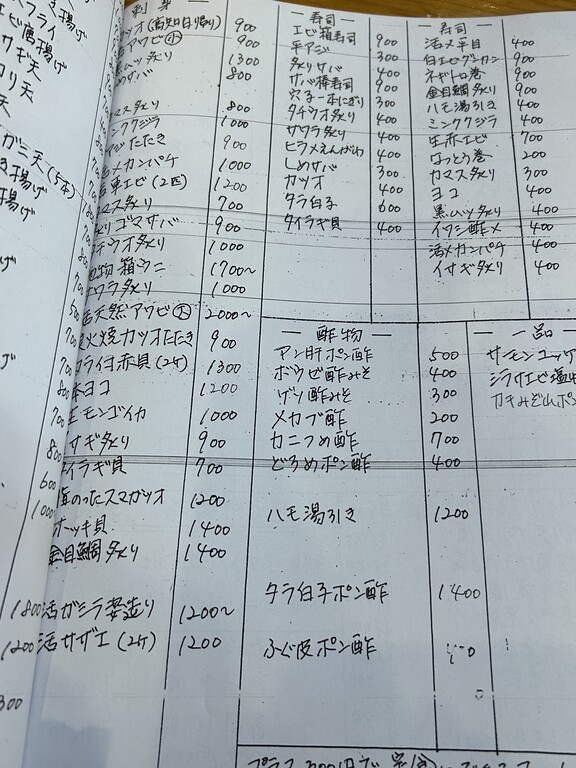 スフライ
エビ唐揚げ
き揚げ
サギ天
天
ガニ天(5本)
き揚げ
揚げ
刺身
カツオ(高知日戻り) 900
アワビ㊥ 900
炙り 1300
サバ 800
カマス炙り 800
ミンククジラ 1000
アジたたき 900
活〆カンパチ 1000
車エビ(2匹) 1200
マス炙り 700
炙りゴマサバ 900
タチウオ炙り 1000
箱ウニ 1700～
サワラ炙り 1000
活天然アワビ㊅ 2000～
火焼カツオたたき 900
赤貝(2ケ) 1300
本ヨコ 1200
モンゴイカ 1000
イサギ炙り 900
タイラギ貝 700
脂のったスマガツオ 1200
ホッキ貝 1400
金目鯛炙り 1400
1800 活ガシラ姿造り 1200～
1200 活サザエ(2ケ) 1200
― 寿司 ―
エビ箱寿司 900
平アジ 300
炙りサバ 400
サバ棒寿司 900
穴子一本にぎり 300
タチウオ炙り 400
サワラ炙り 400
ヒラメえんがわ 400
しめサバ 300
カツオ 400
タラ白子 600
タイラギ貝 400
― 寿司 ―
活〆平目 400
白エビグンカン 900
ネギトロ巻 900
金目鯛炙り 900
ハモ湯引き 400
ミンククジラ 400
生赤エビ 700
なっとう巻 200
カマス炙り 300
ヨコ 400
黒ムツ炙り 400
イワシ酢〆 400
活〆カンパチ 400
イサギ炙り 400
― 酢物 ―
アン肝ポン酢 500
ホウビ酢みそ 400
ゲソ酢みそ 300
メカブ酢 200
カニつめ酢 700
どろめポン酢 400
ハモ湯引き 1200
タラ白子ポン酢 1400
ふぐ皮ポン酢
― 一品
サーモンユッケ
シラサエビ塩
カキみぞれポン
プラス300円で